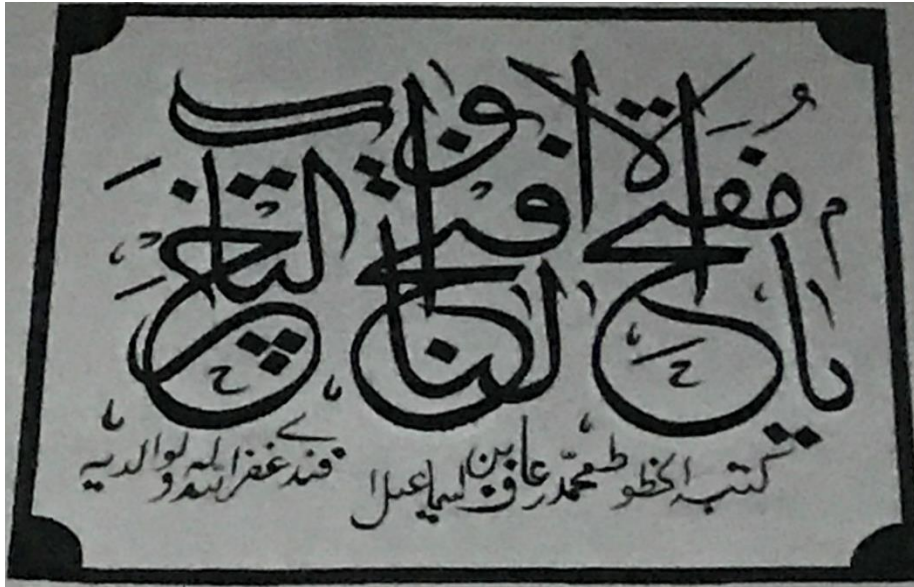 يا مفتح الابواب افتح لنا خير الباب
كتبه الخطوط محمد عارف بن اسماعيل افندي غفر الله له ولوالديه